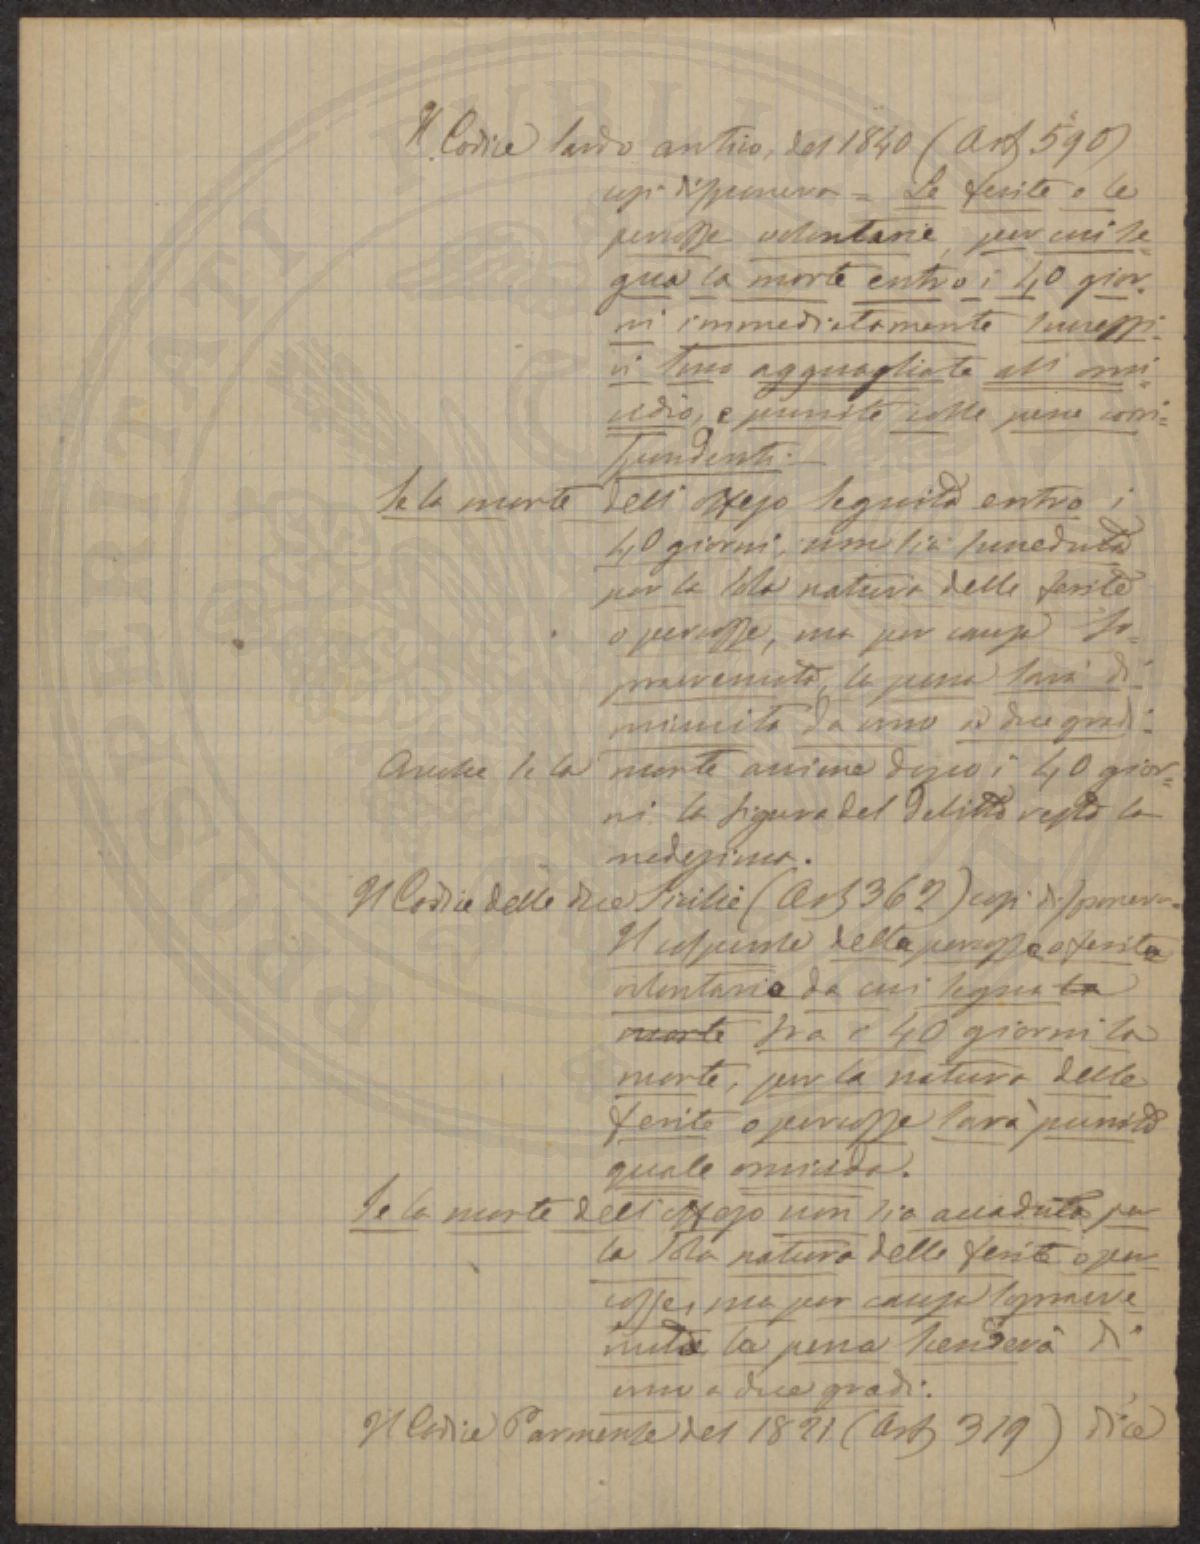 Il Codice Sardo antico, del 1840 (Art 590)
così disponeva = Le ferite o le
percosse volontarie, per cui se-
gua la morte entro i 40 gior-
ni immediatamente successi-
vi sono agguagliate all' omi-
cidio, e punite colle pene corri-
spondenti.—
Se la morte dell' offeso seguita entro i
40 giorni, non sia succeduta
per la sola natura delle ferite
o percosse, ma per causa so-
praevenuta, la pena sarà di-
minuita da uno a due gradi.
Anche se la morte avviene dopo i 40 gior-
ni la figura del delitto resta la
medesima.
Il Codice delle due Sicilie (Art 362) così disponeva-
Il colpevole delle percosse o ferite
volontarie da cui segua la
morte fra i 40 giorni la
morte, per la natura delle
ferite o percosse sarà punito
quale omicida.
Se la morte dell' offeso non sia accaduta per
la sola natura delle ferite o per-
cosse, ma per causa sopravve
nuta la pena scenderà di
uno a due gradi.
Il Codice Parmense del 1821 (Art 319) dice
POSTERITATI PUBLIC